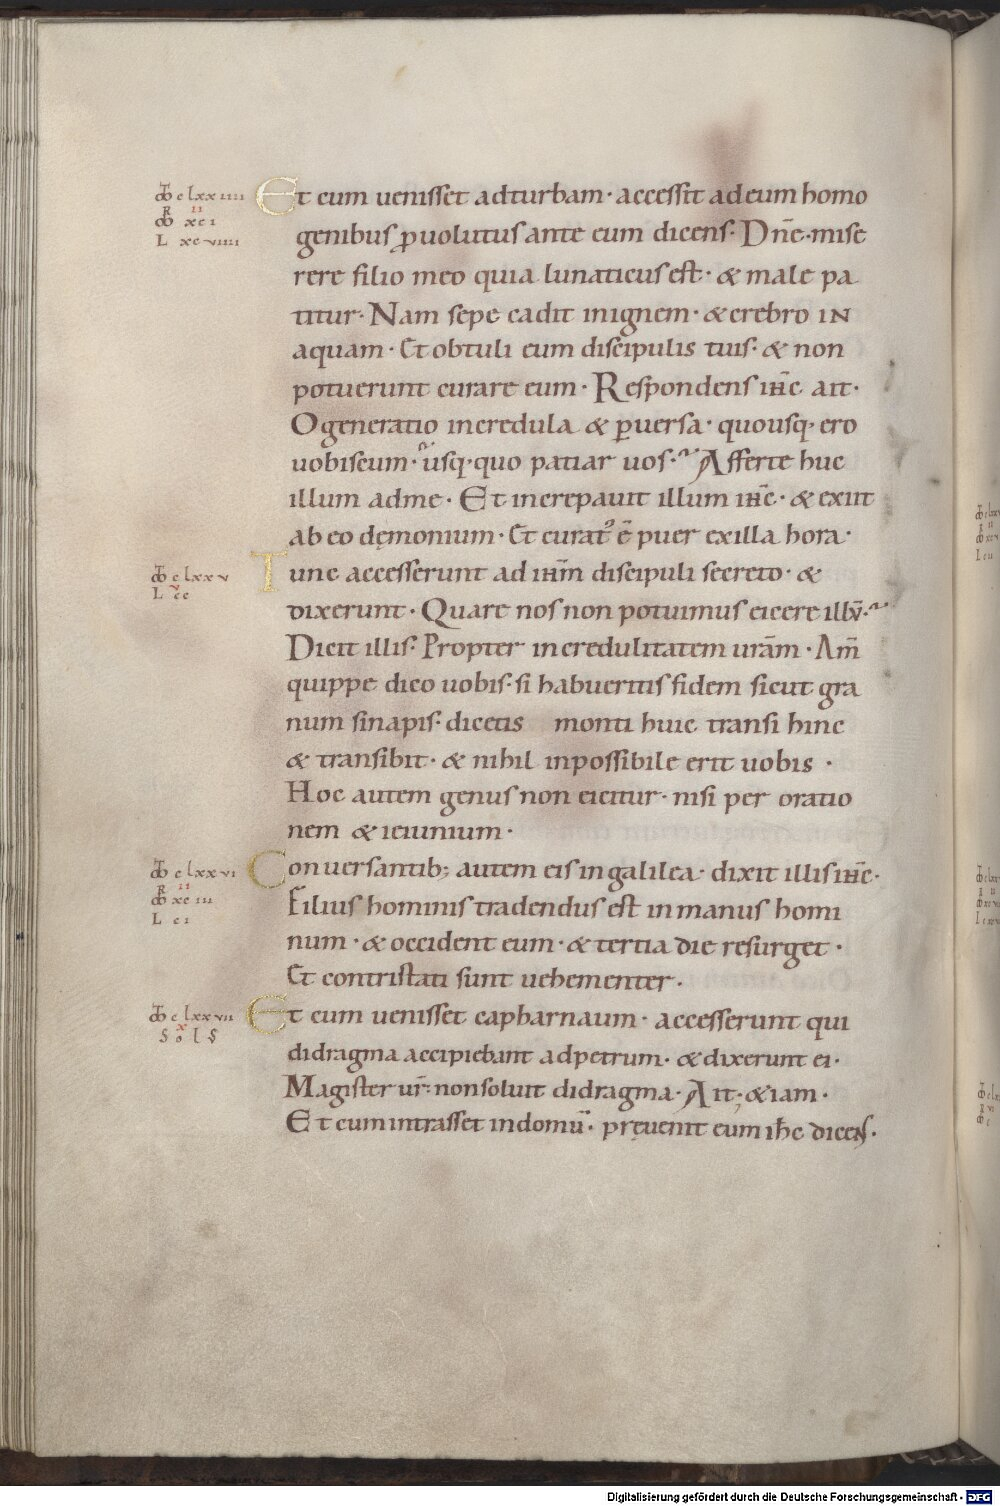 Et cum uenisset adturbam · accessit adeum homo
genibus ꝓuolutus ante eum dicens · Dn̄e · mise
rere filio meo quia lunaticus est · & male pa
titur · Nam sepe cadit inignem · & crebro IN
aquam · Et obtuli eum discipulis tuis · & non
potuerunt curare eum · Respondens ih̄c ait ·
O generatio incredula & ꝑuersa · quousq · ero
uobiscum · usq · quo patiar uos · Afferte huc
illum adme · Et increpauit illum ih̄c · & exiit
ab eo dęmonium · Et curatꝰ ē puer exilla hora ·
Tunc accesserunt ad ih̄m discipuli secreto · &
dixerunt · Quare nos non potuimus eicere illū ·
Dicit illis · Propter incredulitatem urām · Am̄
quippe dico uobis · si habueritis fidem sicut gra
num sinapis · dicetis monti huic transi hinc
& transibit · & nihil inpossibile erit uobis ·
Hoc autem genus non eicitur · nisi per oratio
nem & ieiunium ·
Conuersantib; autem eis in galilea · dixit illis ih̄c ·
Filius hominis tradendus est in manus homi
num · & occident eum · & tertia die resurget ·
Et contristati sunt uehementer ·
Et cum uenisset capharnaum · accesserunt qui
didragma accipiebant adpetrum · & dixerunt ei ·
Magister ur̄ · non soluit didragma · Ait · &iam ·
Et cum intrasset in domū · pręuenit eum ih̄c dicens ·
c lxx iiii
R ii
xc i
L xc viiii
c lxx v
L cc
c lxx vi
R ii
xc iii
L c i
c lxx vii
x
S o l S
Digitalisierung gefördert durch die Deutsche Forschungsgemeinschaft - DFG